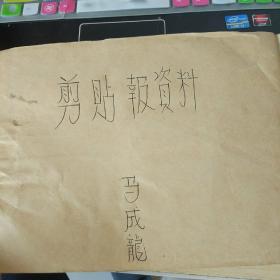 剪貼報資料
马成龍